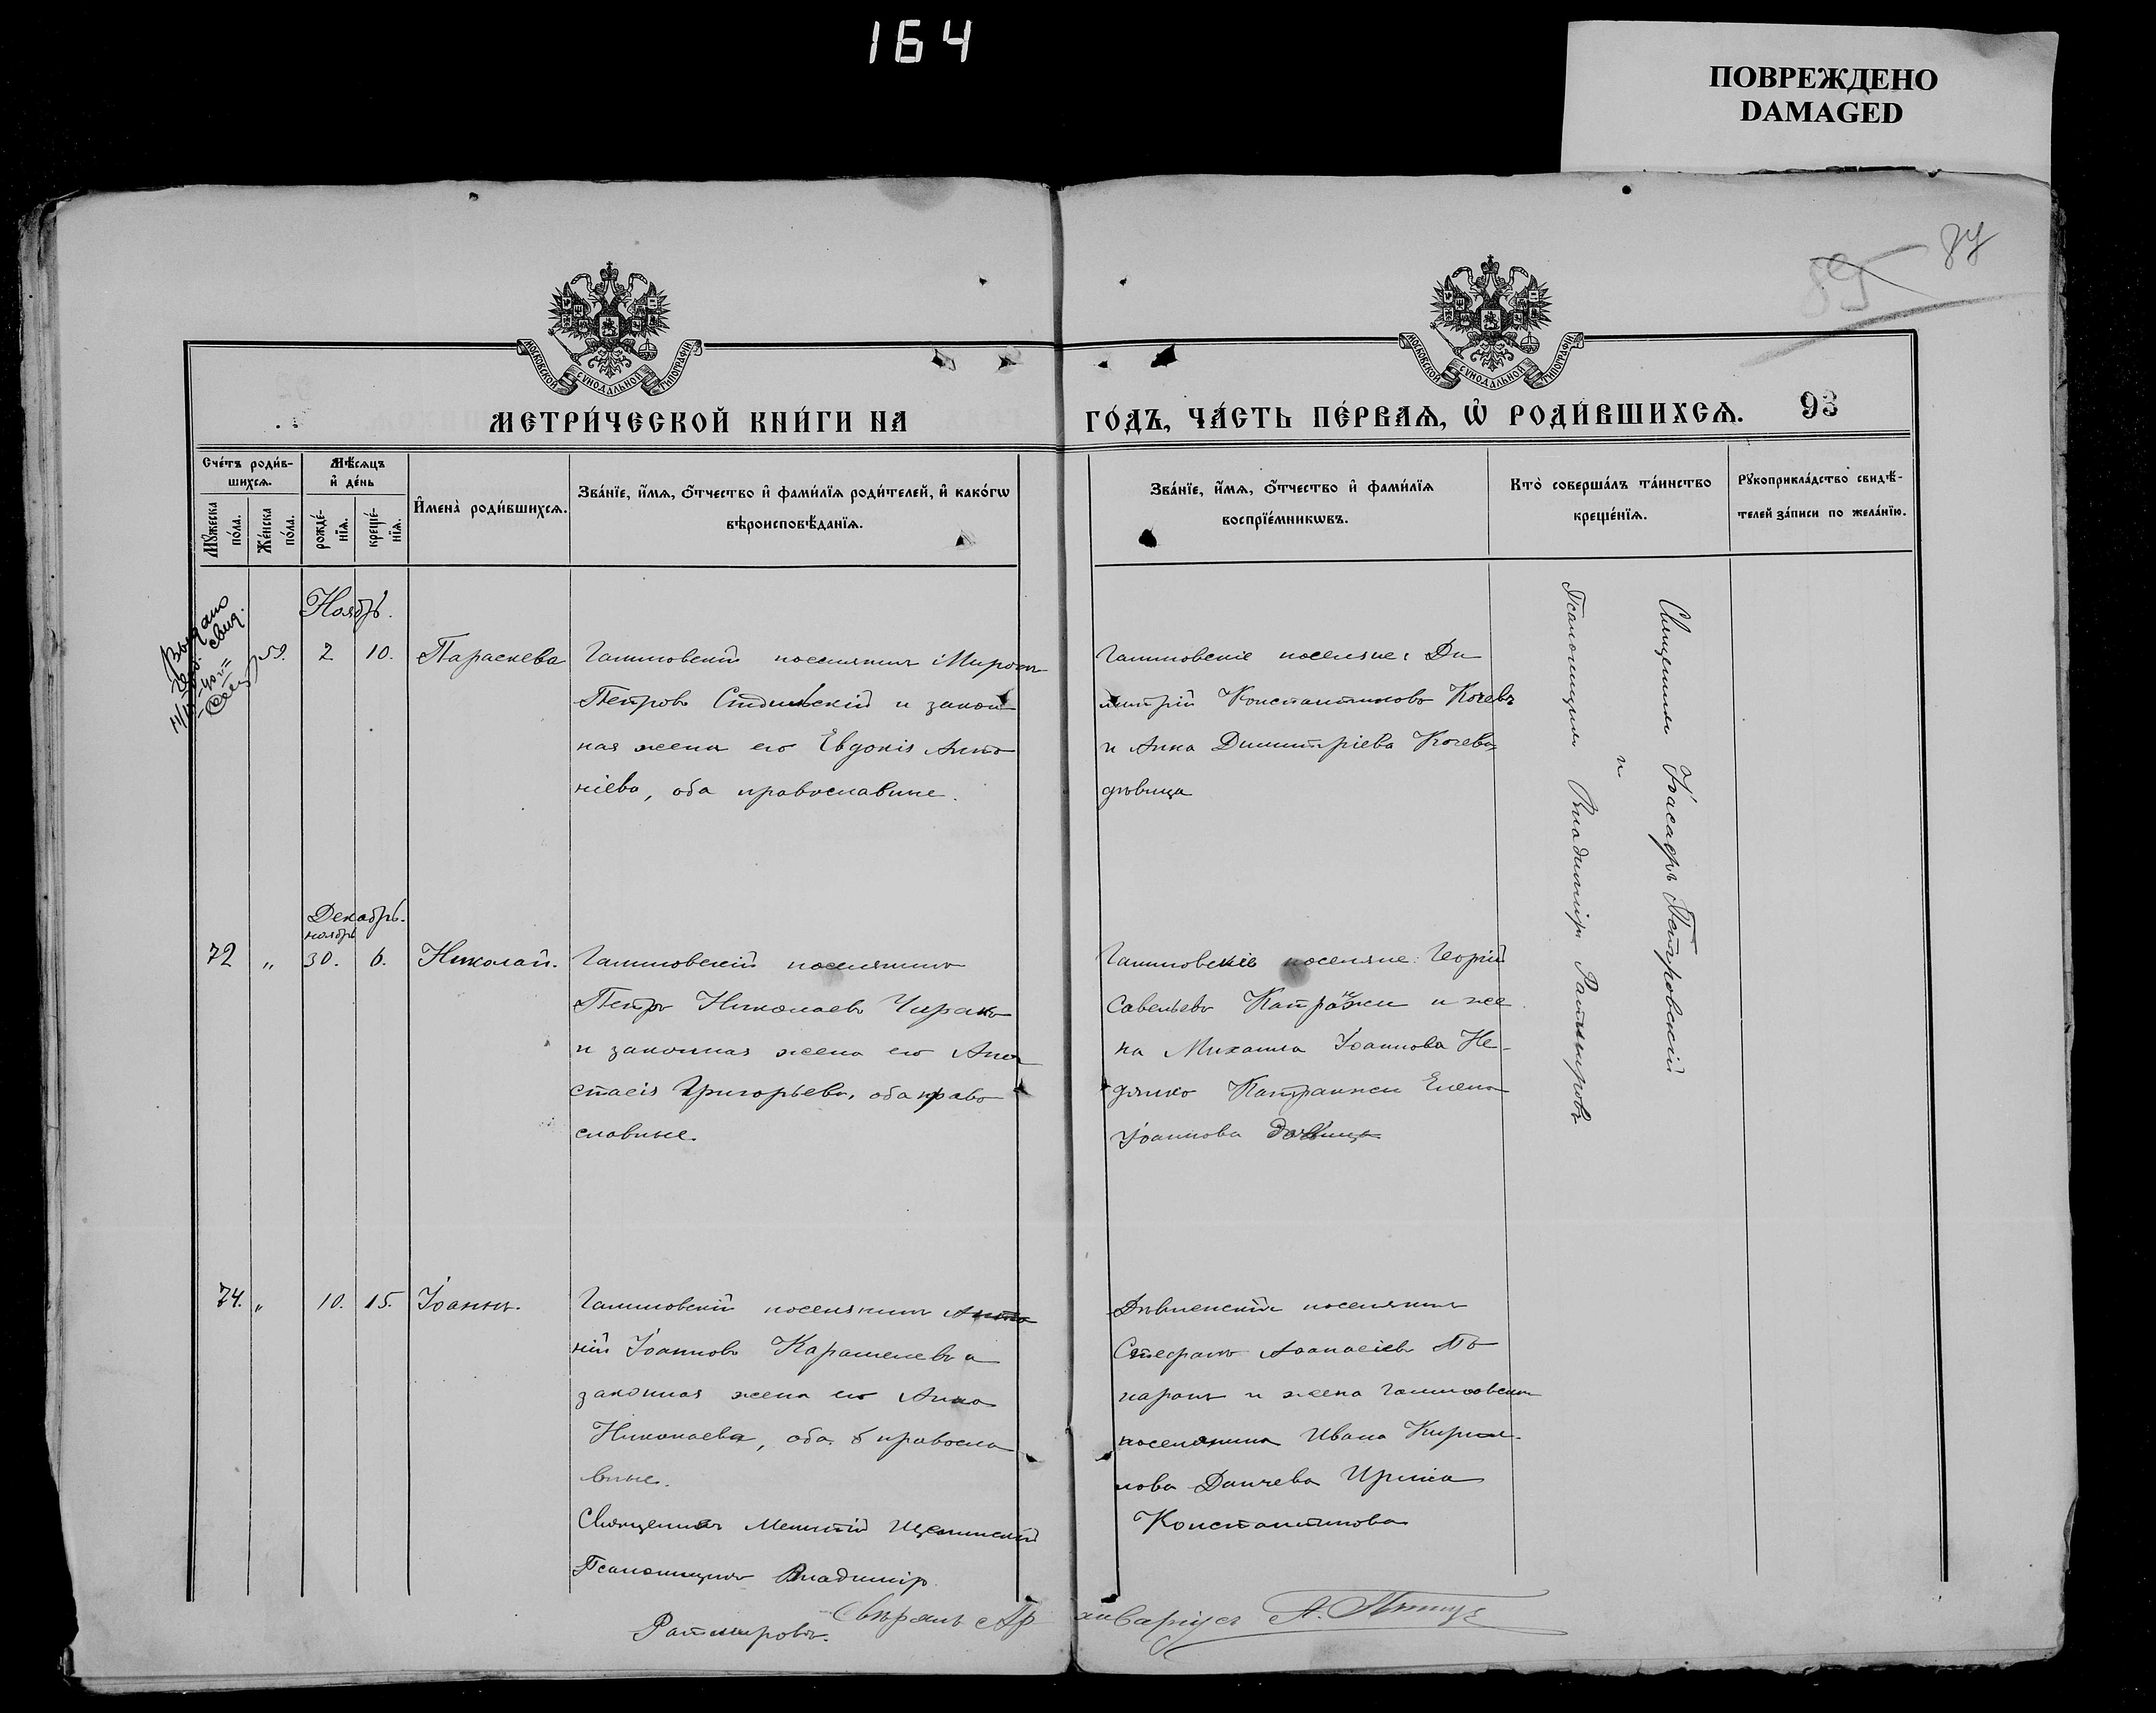 164
ПОВРЕЖДЕНО
DAMAGED
89
87
МОСКОВСКОЙ СѴНОДАЛЬНОЙ ТИПОГРАФІИ
МОСКОВСКОЙ СѴНОДАЛЬНОЙ ТИПОГРАФІИ
МЕТРИ́ЧЕСКОЙ КНИ́ГИ НА ГО́ДЪ, ЧА́СТЬ ПЕ́РВАѦ, Ѡ РОДИ́ВШИХСѦ. 93
Сче́тъ роди́в-
шихсѧ.
Мꙋ́жеска
по́ла.
Же́нска
по́ла.
Мѣ́сѧцъ
и҆ де́нь
рожде́-
нїѧ.
креще́-
нїѧ.
И҆мена̀ роди́вшихсѧ.
Зва́нїе, и҆́мѧ, ѻ҆́тчество и҆ фами́лїѧ роди́телей, и҆ како́гѡ
вѣроисповѣ́данїѧ.
Зва́нїе, и҆́мѧ, ѻ҆́тчество и҆ фами́лїѧ
воспрїе́мникѡвъ.
Кто̀ соверша́лъ та́инство
креще́нїѧ.
Рꙋкоприкла́дство свидѣ́-
телей за́писи по жела́нїю.
Выдано
свид.
Ноябрь.
59. 2 10. Параскева
Галиловскій поселянинъ Миронъ
Петровъ и закон
ная жена его Евдокія Анто
ніева, оба православные.
Галиловскіе поселяне: Ди
митрій Константиновъ Кочевъ
и Анна Димитріева Кочева
дѣвица
Священникъ Іоасафъ Петровскій
и
Псаломщикъ Владиміръ Ратмировъ
Декабрь.
ноябрь
72 " 30. 6. Николай.
Галиловскій поселянинъ
Петръ Николаевъ Чиракъ
и законная жена его Ана
стасія Григорьева, оба право
славные.
Галиловскіе поселяне: Георгій
Савельевъ и же
на Михаила Іоаннова Не-
дялко Катранжи Елена
Іоаннова
74. " 10. 15. Іоаннъ.
Галиловскій поселянинъ Анто
ній Іоанновъ Карамелевъ и
законная жена его Анна
Николаева, оба православ
вные.
Священникъ
Псаломщикъ Владиміръ
Ратмировъ.
поселянинъ
Стефанъ Аѳанасіевъ По
паранъ и жена Галиловскаго
поселянина Ивана Кирил-
лова Данчева Ирина
Константинова
Свѣрялъ Архиваріусъ